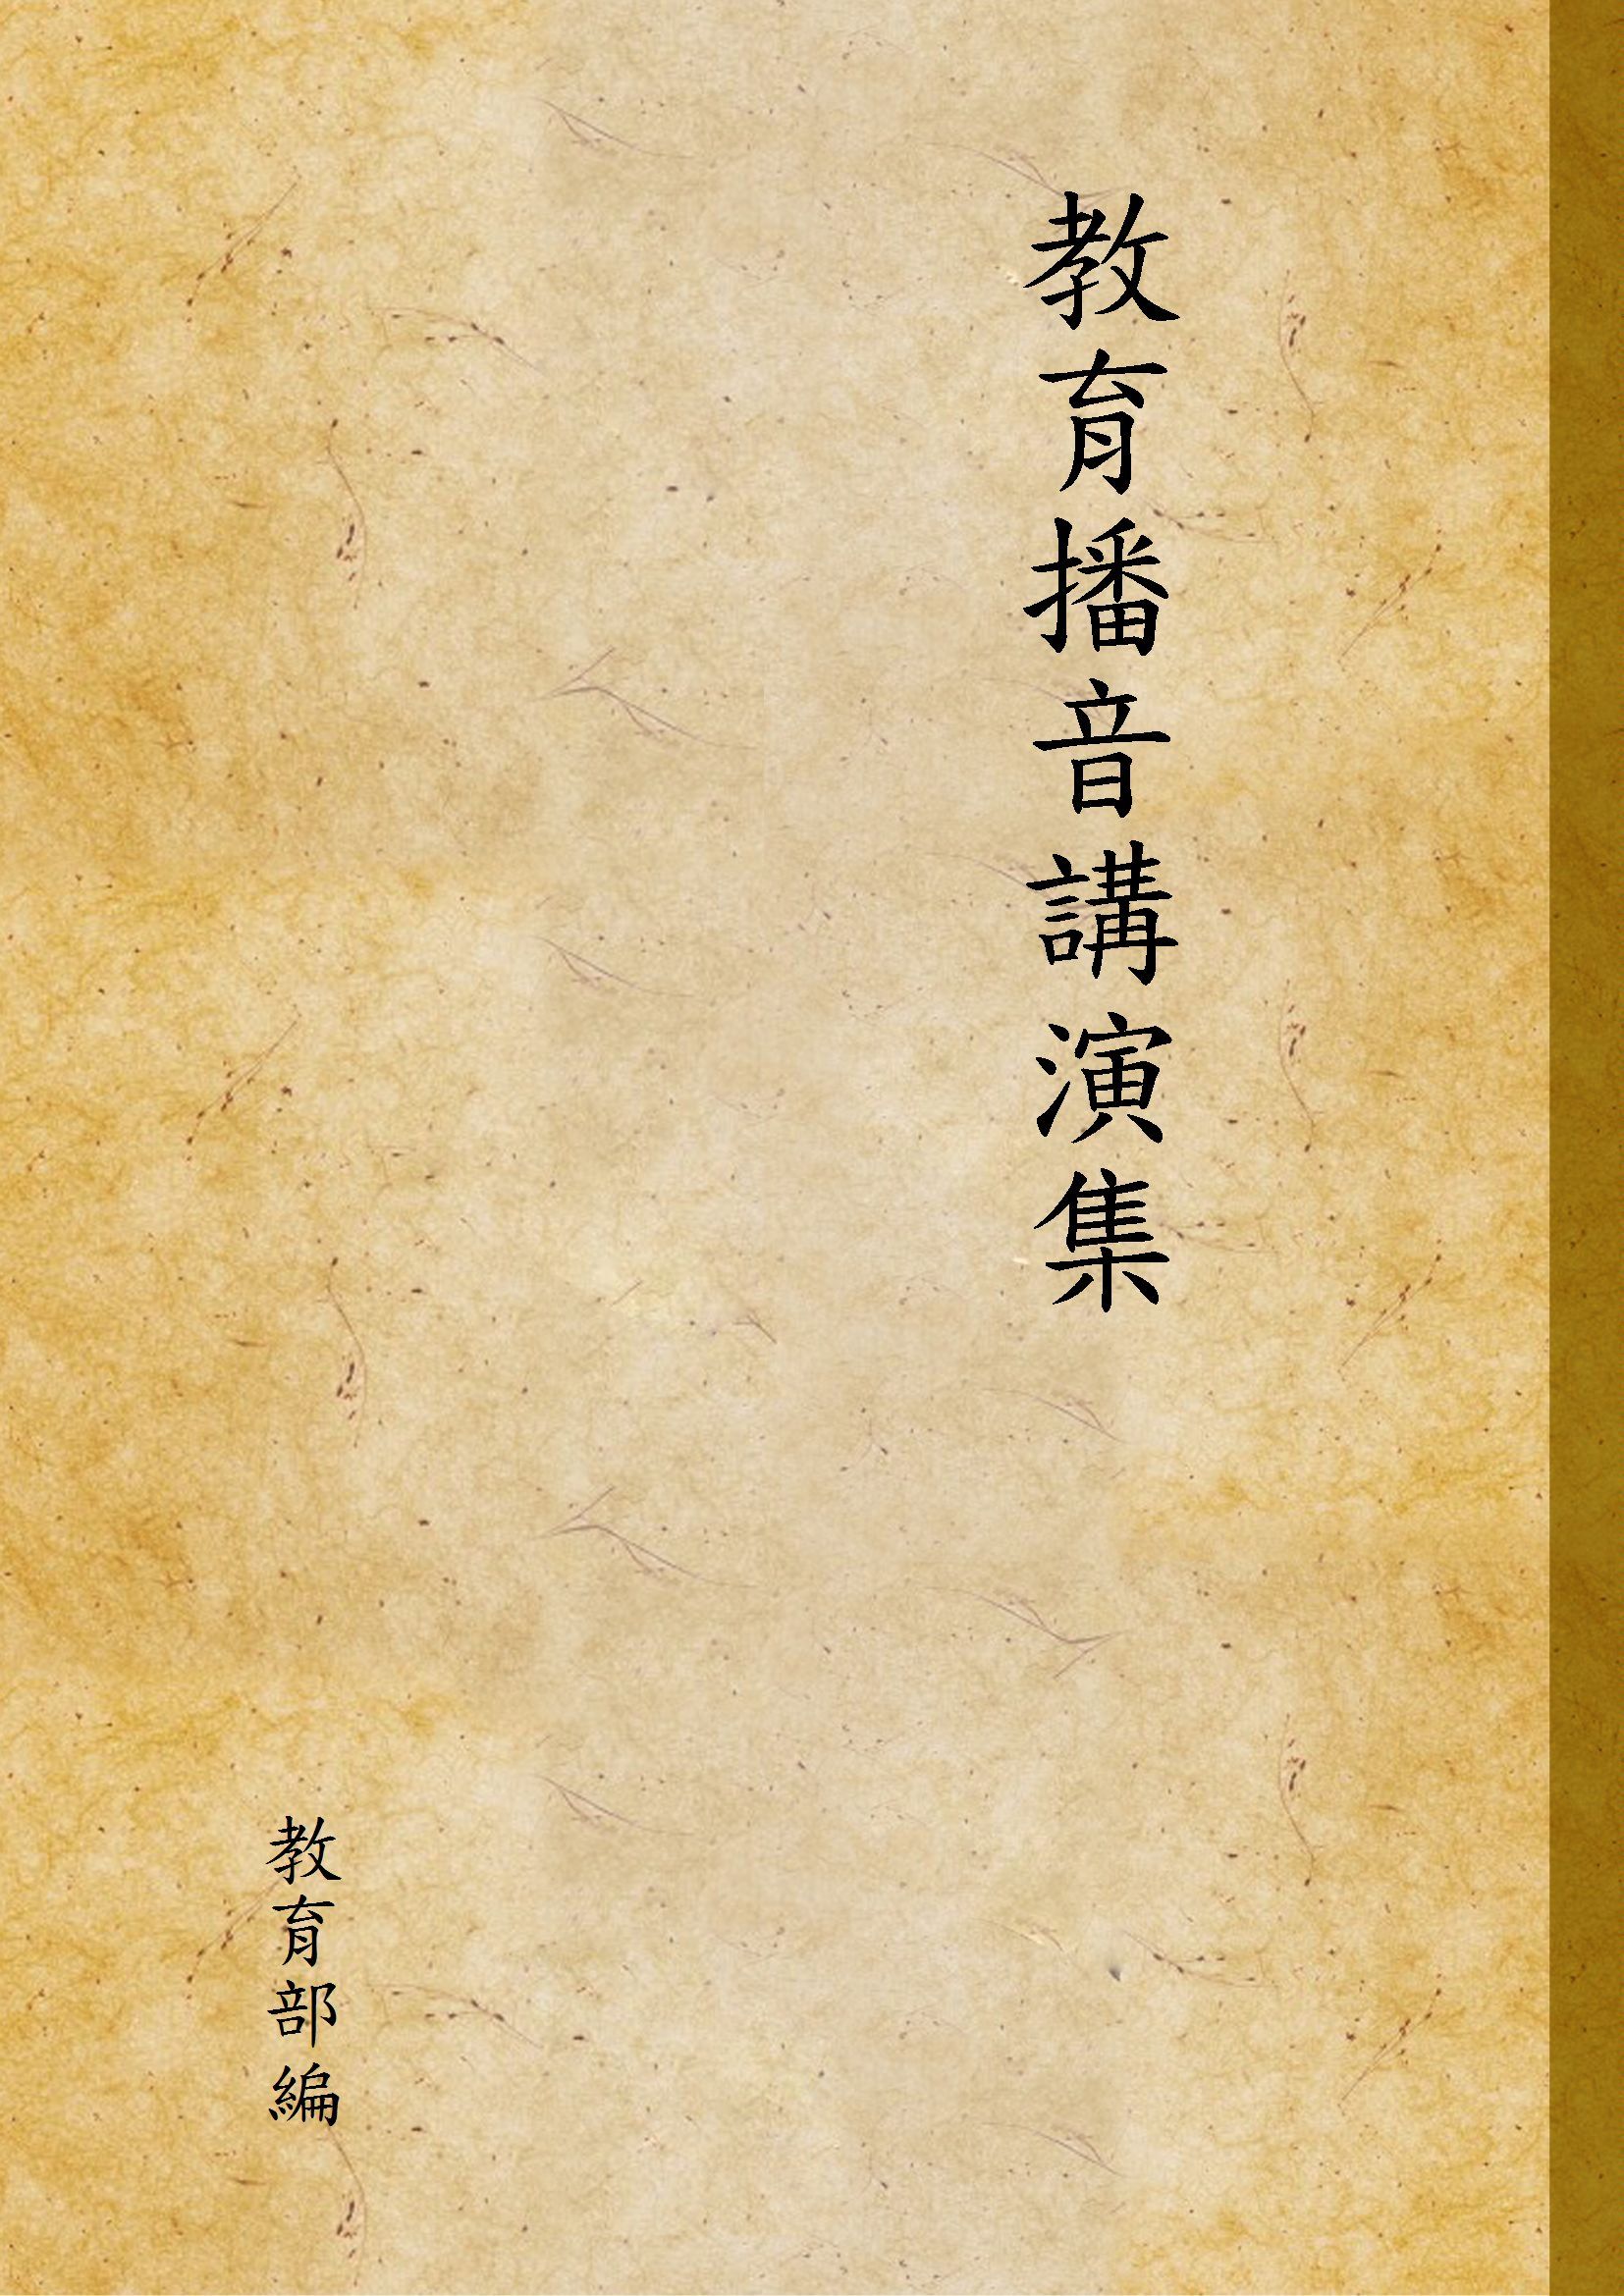 教育播音講演集
教育部編